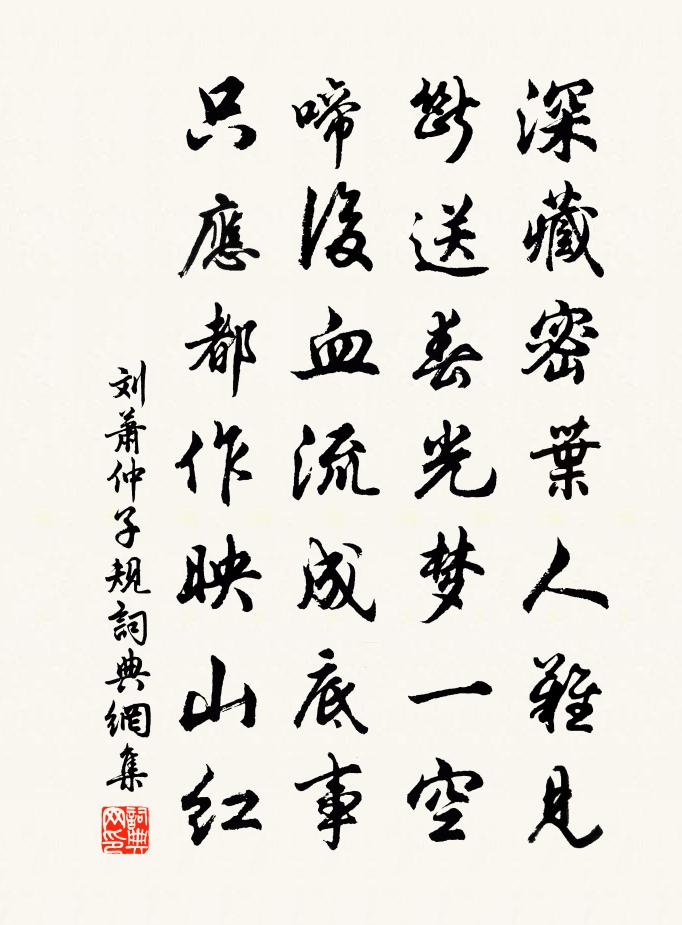 深藏密葉人難見
斷送春光梦一空
啼後血流成底事
只應都作映山红
刘蕭仲子规詞典網集
詞典網印